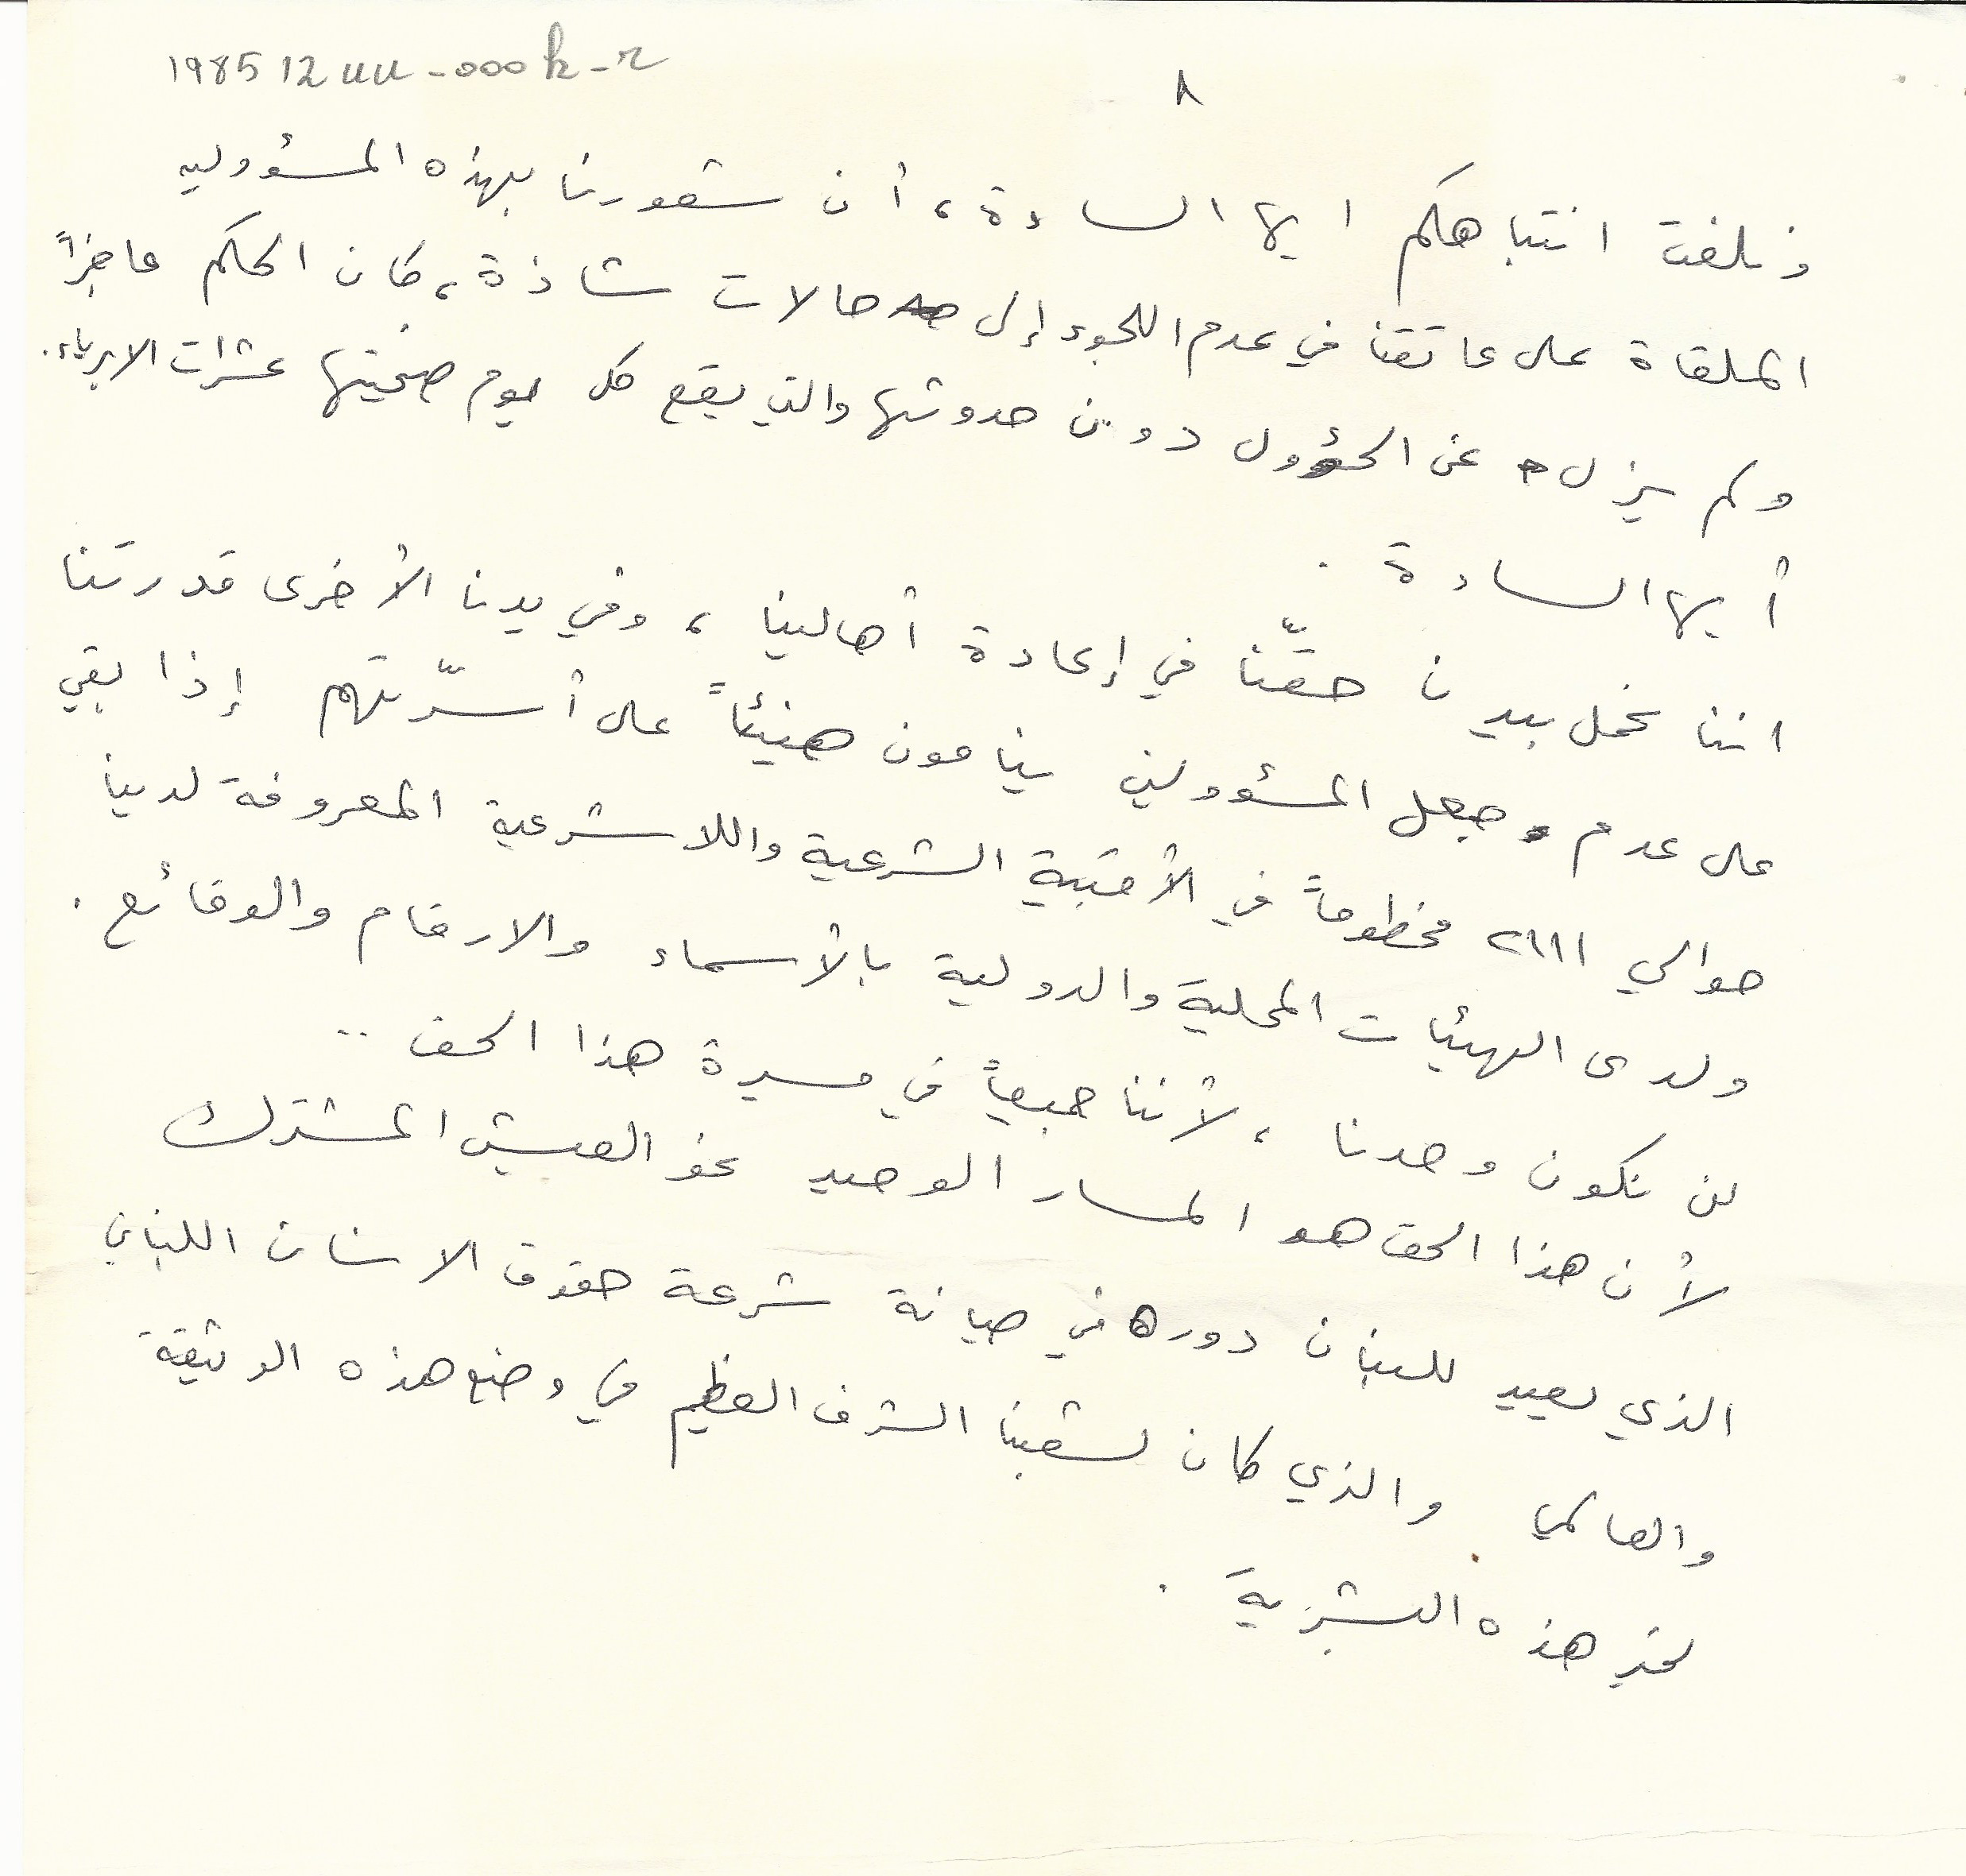 1985 12 uu - 000 k - r
٨
ونلفت انتباهكم ايها السادة، أن شعورنا بهذه المسؤوليه
الملقاة على عاتقنا في عدم اللجوء إلى حالات شاذة، كان الحكم عاجزاً
ولم يزل عن الحؤول دون حدوثها والتي يقع كل يوم ضحيتها عشرات الابرياء.
أيها السادة.
اننا نحمل بيد حقّنا في إعادة أهالينا، وفي يدنا الأخرى قدرتنا
على عدم جعل المسؤولين ينامون هنيئاً على أسرّتهم إذا بقي
حوالي ٢١١١ مخطوفاً في الأقبية الشرعية واللاشرعية المعروفة لدينا
ولدى الهيئات المحلية والدولية بالأسماء والارقام والوقائع.
لن نكون وحدنا، لأننا جميعاً في مسيرة هذا الحق ..
لأن هذا الحق هو المسار الوحيد نحو العيش المشترك
الذي يعيد للبنان دوره في صيانة شرعة حقوق الانسان اللبناني
والعالمي والذي كان لشعبنا الشرف العظيم في وضع هذه الوثيقة
لخير هذه البشرية.